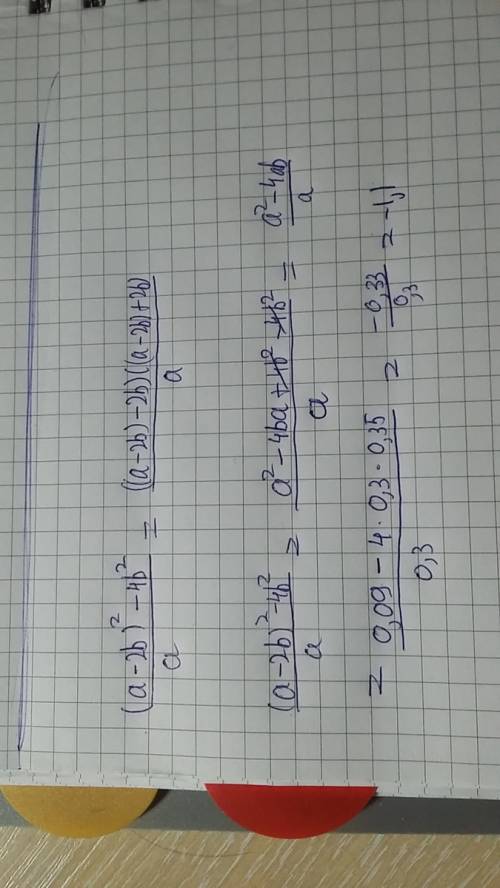 ((a-2b)² - 4b²)/a = (((a-2b)-2b)((a-2b)+2b))/a
((a-2b)² - 4b²)/a = (a² - 4ba + 4b² - 4b²)/a = (a² - 4ab)/a
= (0,09 - 4 · 0,3 · 0,35)/0,3 = (-0,33)/0,3 = -1,1